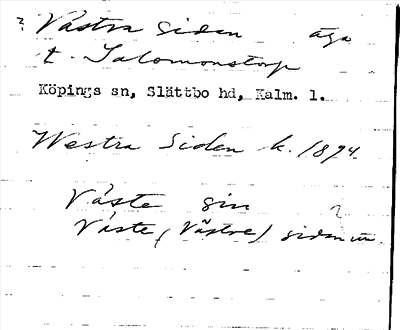 ? Västra Siden äga
t. Salomonstorp
Köpings sn, Slättbo hd, Kalm. l.
Westra Siden k. 1894.
Väste sin ?
Väste (Västre) siden